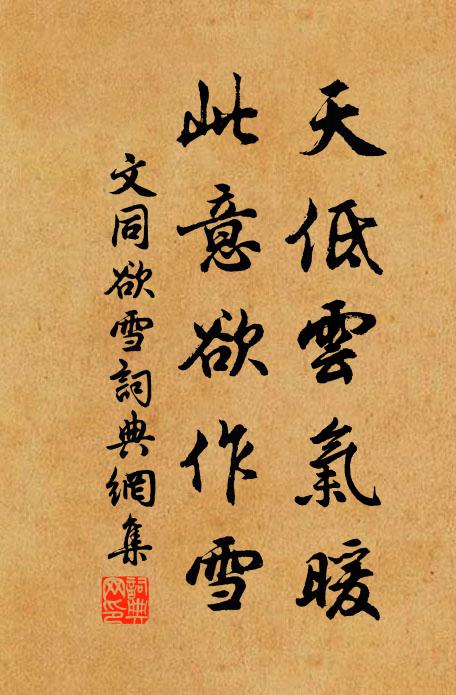 天低雲氣暖
此意欲作雪
文同欲雪詞典網集
詞典網印